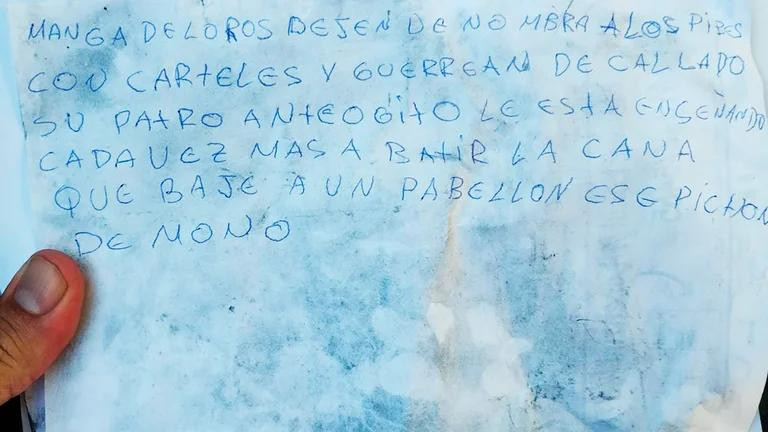 MANGA DE LOROS DEJEN DE NO MBRA A LOS PIBES
CON CARTELES Y GUERREAN DE CALLADO
SU PATRO ANTEOGITO LE ESTA ENSEÑANDO
CADA VEZ MAS A BATIR LA CANA
QUE BAJE A UN PABELLON ESE PICHON
DE MONO